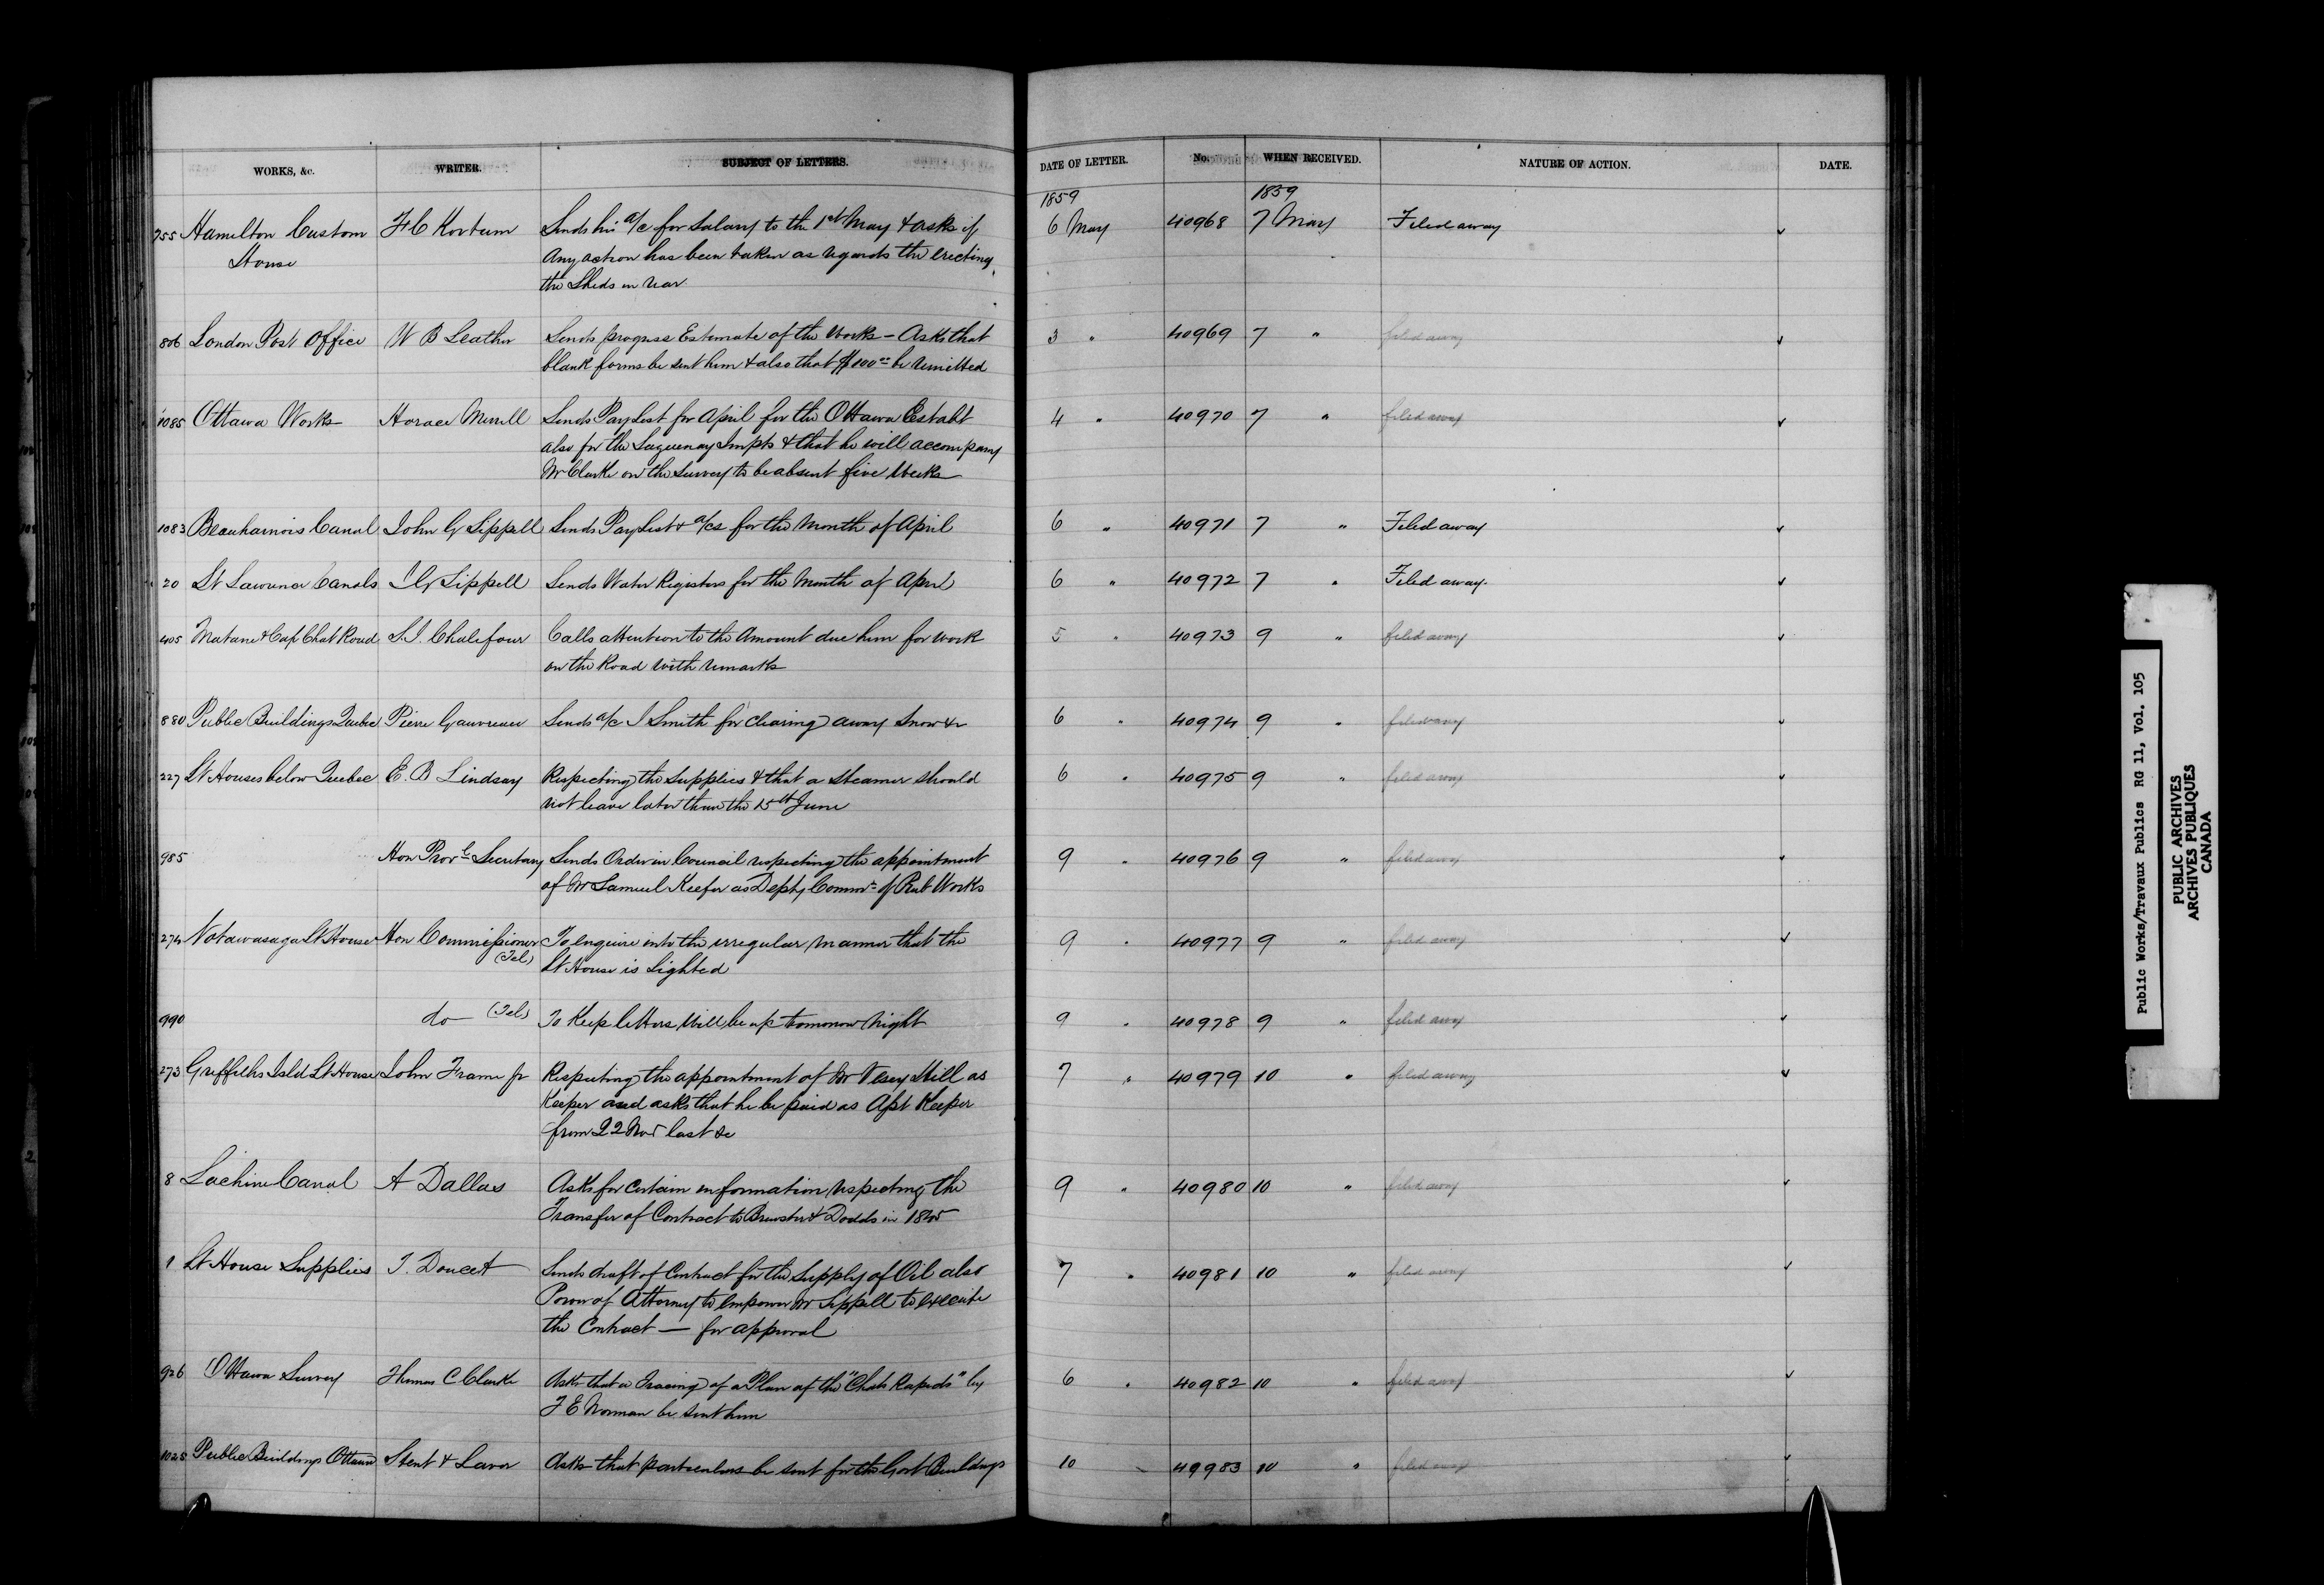 WORKS, &c. WRITER. SUBJECT OF LETTERS. DATE OF LETTER. No. WHEN RECEIVED. NATURE OF ACTION. DATE.
1859 1859
755 Hamilton Custom F C Kortum Sends his a/c for Salary to the 1st May & asks if 6 May 40968 7 May Filed away
House any action has been taken as regards the erecting
the Sheds in rear
806 London Post Office W B Leather Sends progress Estimate of the Works - Asks that 3 " 40969 7 " filed away
blank forms be sent him & also that be remitted
1085 Ottawa Works Horace Merrill Sends Paylist for April for the Ottawa Establt 4 " 40970 7 " filed away
also for the Saguenay Impts & that he will accompany
Mr Clarke on the survey to be absent five weeks
1083 Beauharnois Canal John G Sippell Sends Paylist & a/cs for the Month of April 6 " 40971 7 " Filed away
20 St Lawrence Canals J G Sippell Sends Water Registers for the Month of April 6 " 40972 7 " Filed away.
405 Matane & Cap Chat Road Chalefour Calls attention to the Amount due him for work 5 " 40973 9 " filed away
on the Road with remarks
880 Public Buildings Quebec Pierre Gauvreau Sends a/c J Smith for Clearing away Snow &c 6 " 40974 9 " filed away
227 Lt Houses below Quebec E. B Lindsay Respecting the supplies & that a Steamer should 6 " 40975 9 " filed away
not leave later than the 15th June
985 Hon Provl Secretary Sends Order in Council respecting the appointment 9 " 40976 9 " filed away
of Mr Samuel Keefer as Depty Commr of Pub Works
274 Notawasaga Lt House Hon Commissioner To enquire into the irregular manner that the 9 " 40977 9 " filed away
(Tel) Lt House is Lighted
990 do (Tel) To Keep letters Will be up tomorrow Night 9 " 40978 9 " filed away
273 Griffiths Isld Lt House John Frame Jr Respecting the appointment of Mr Vesey Hill as 7 " 40979 10 " filed away
Keeper and asks that he be paid as Keeper
from 22 Nov last &c
8 Lachine Canal A Dallas Asks for certain information respecting the 9 " 40980 10 " filed away
Transfer of Contract to Brewster & Dodds in 1845
1 Lt House Supplies T. Doucet Sends draft of Contract for the Supply of Oil also 7 " 40981 10 " filed away
Power of Attorney to empower Mr Sippell to execute
the Contract — for approval
926 Ottawa Survey Thomas C Clarke Asks that a Tracing of a Plan of the "Chats Rapids" by 6 " 40982 10 " filed away
F E Norman be sent him
1025 Public Buildings Ottawa Stent & Laver Asks that particulars be sent for the Govt Buildings 10 40983 10 " filed away
Public Works/Travaux Publics RG 11, Vol. 105
PUBLIC ARCHIVES
ARCHIVES PUBLIQUES
CANADA